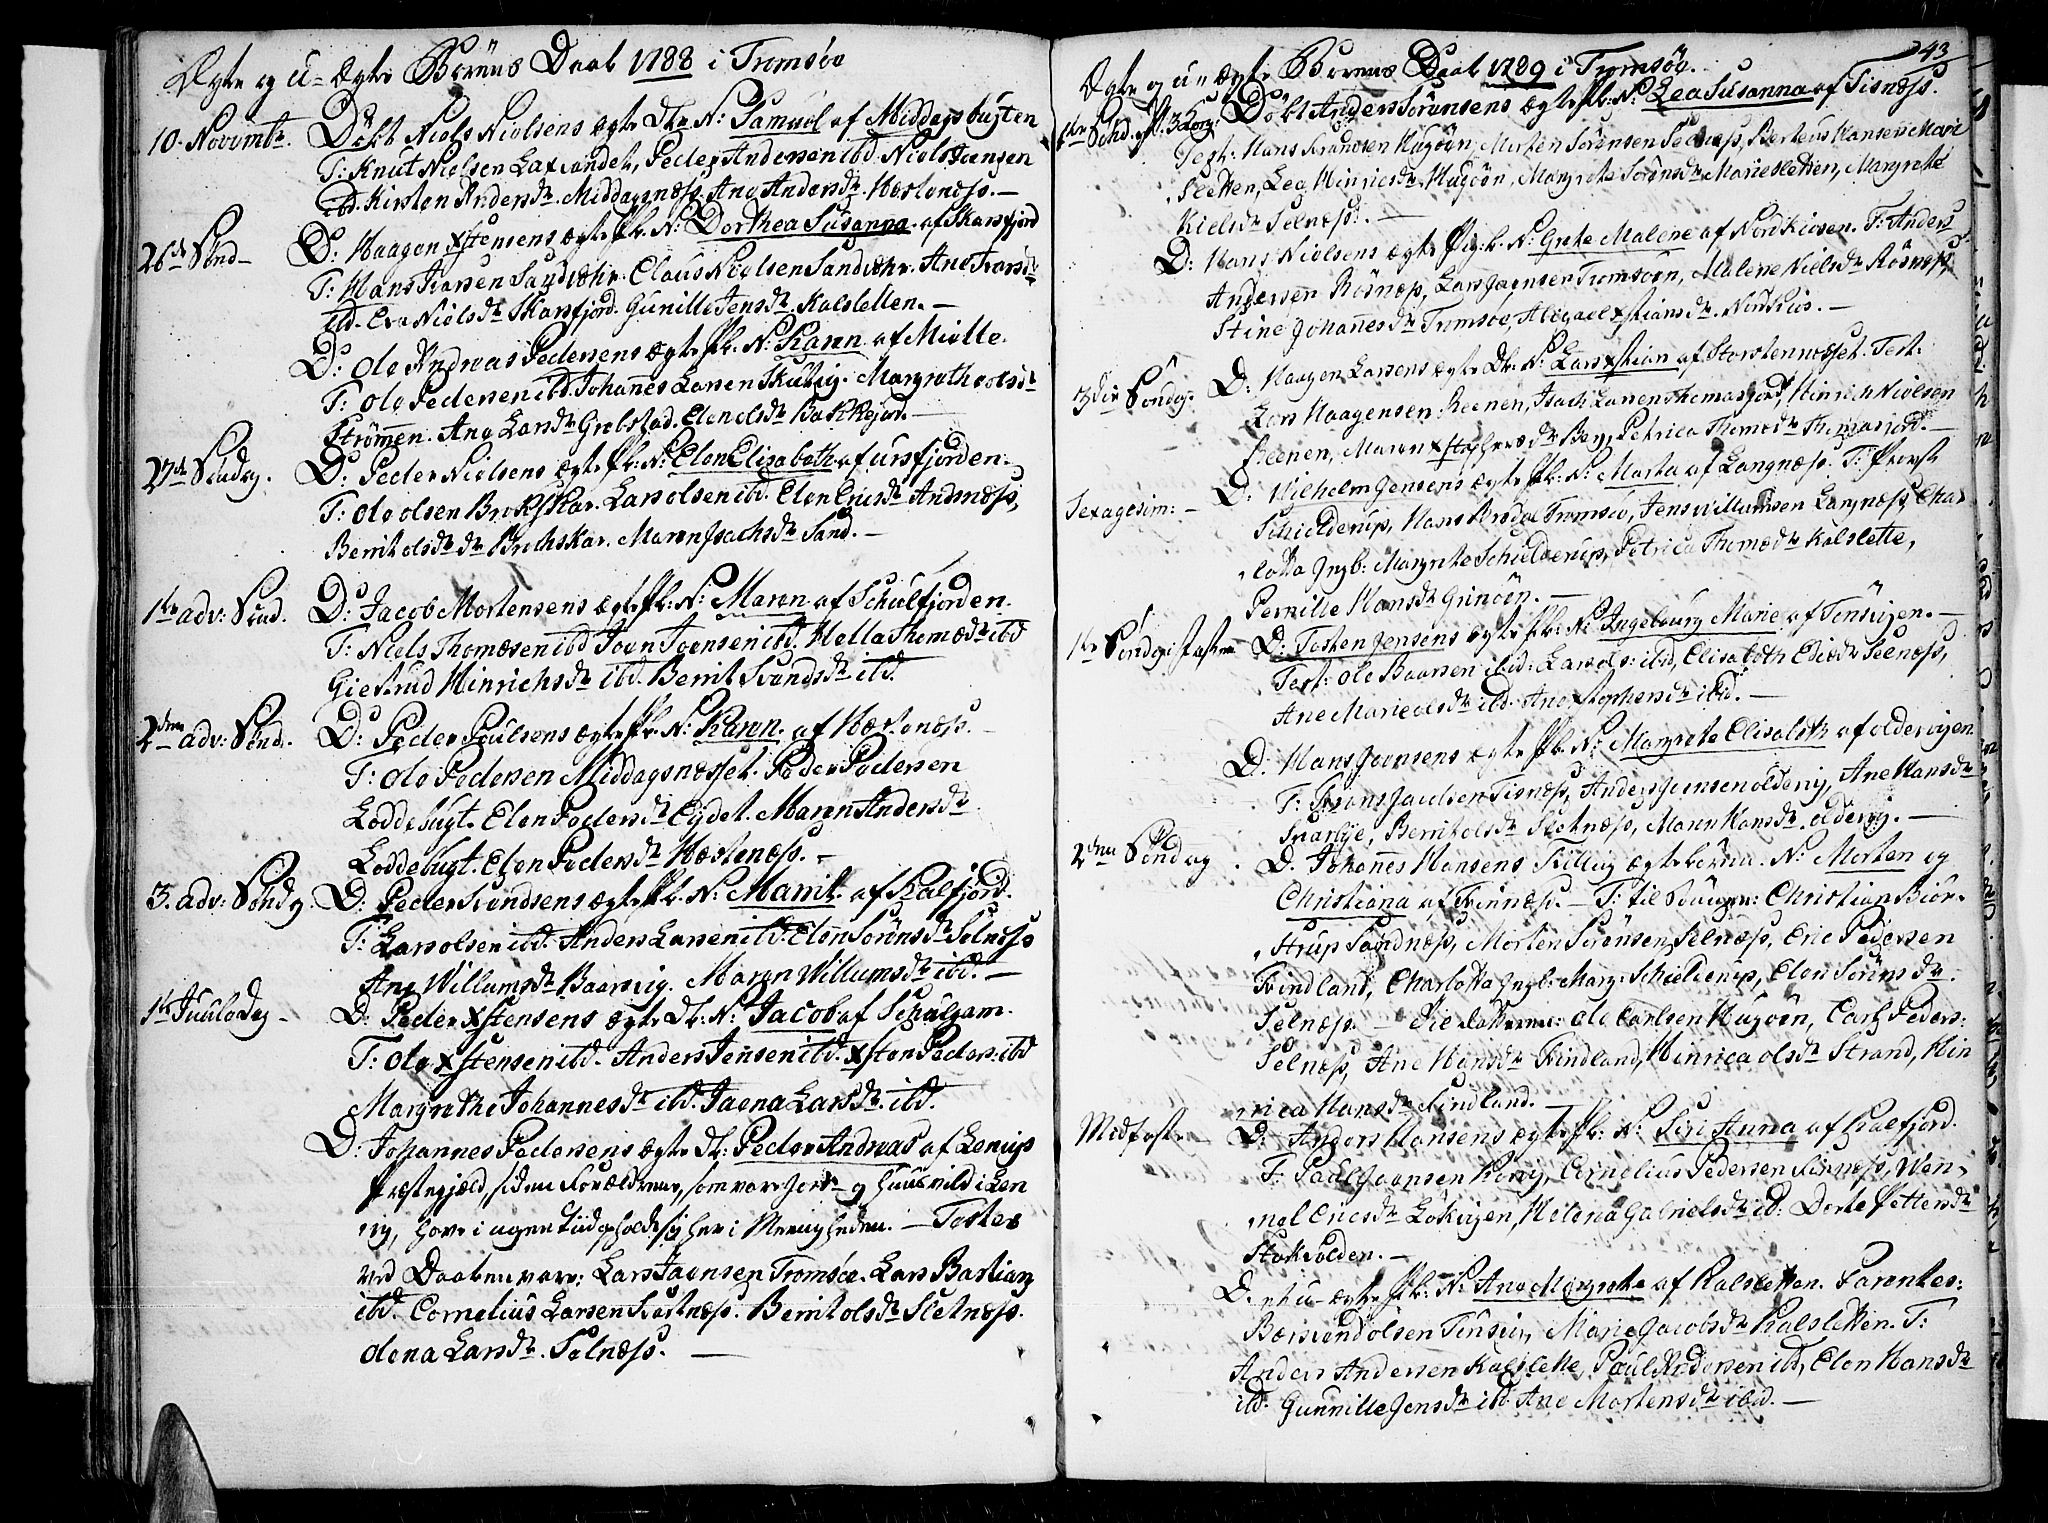 Ægte og U-Ægte Børnes Daab 1788 i Tromsöe
10. Novembr. Döbt Niels Nielsens ægte Dr. N: Samuel af Middagsbugten
T: Knut Nielsen Laxvandet, Peder Andersen ibd. Niels Joensen
ibd. Kirsten Andersdr. Middagsnæss, Ane Andersdr. Hæstenæss. —
26de Sönd — D: Haagen Xstensens ægte Pb. N: Dorthea Susanna af Skarsfjord
T: Hans Larsen Sandvæhr. Claus Nielsen Sandvæhr. Ane
ibd. Eva Nielsdr. Skarsfjord. Gunille Jensdr. Kalsletten. —
D: Ole Andreas Pedersens ægte Pb. N: Karen af Mielle.
T: Ole Pedersen ibd. Johanes Larsen Skutvig. Margrethe olsdr
Strömen. Ane Larsdr. Grebstad. Elen elsdr. Bakkejor. —
27de Söndag. D: Peder Nielsens ægte Pb: N: Elen Elisabeth af Ursfjorden.
T: Ole olsen Brokskar. Lars olsen ibd. Elen Ericsdr Andsnæss,
Berit olsdr Brokskar. Maren Isachsdr Sand. —
1te adv: Sönd. D: Jacob Mortensens ægte Pb. N: Maren af Schulsfjorden.
T: Niels Thomæsen ibd Joen Joensen ibd. Hella Thomædr ibd
Giertrud Hinrichsdr ibd. Berit Svendsdr ibd.
2den adv: Sönd. D: Peder Poulsens ægte Pb. N: Karen. af Hæstenæss.
T: Ole Pedersen Middagsnæsset. Peder Pedersen
Loddebugt. Elen Pedersdr Eydet. Maren Andersdr
Loddebugt. Elen Pedersdr Hæstenæss. —
3. adv: Söndg. D: Peder Svendsens ægte Pb. N: Marit af Kalfjord.
T: Lars olsen ibd. Anders Larsen ibd. Elen Sörensdr Selnæss
Ane Willumsdr Baarsvig. Maren Willumsdr ibd. —
1te Juuledag — D: Peder Xstensens ægte Db: N: Jacob af Schulgam.
T: Ole Xstensen ibd. Anders Jensen ibd. Xsten Peders: ibd
Margrethe Johannesdr ibd. Jaena Larsdr. ibd.
D: Johannes Pedersens ægte Db: Peder Andreas af Lenvigs
Præstegjeld, siden Forældrene, som vare Jord- og Huusvild i Len
vig, have i nogen Tiid opholdt sig her i Menigheden. — Testes
ved Daaben vare: Lars Jaensen Tromsöe. Lars Bastian
ibd. Cornelius Larsen Berit olsdr Sletnæss.
Olena Larsdr. Selnæss. —
43
Ægte og u-ægte Börnes Daab 1789 i Tromsöe.
Döbt Anders Sörensens ægte Pb. N: Lea Susanna af Tisnæss.
Test: Hans Hugöen, Morten Sörensen Selnæss, Berteus Hansen Marie
Sletten, Lea Hinricsdr Hugöen, Margrete Sörensdr Mariesletten, Margrete
Kielsdr Selnæss. —
D: Hans Nielsens ægte Pig.b. N: Grete Malene af Nordkiosen. T: Anders
Andersen Rösnæss, Lars Jaensen Tromsöen, Malene Nielsdr Rösnæss,
Stine Johanesdr Tromsöe, Abegael Xstiansdr. Nordkios. —
3die Söndag. D: Haagen Larsens ægte Db. N: Lars Xstian af Storstennæsset. Test:
Haagensen Reenen, Isach Larsen Thomasjord, Hinrich Nielsen
Reenen, Maren Berg, Petrica Thomædr Thomasjord. —
Sexagesim: — D: Wilhelm Jensens ægte Pb: N: Marta af Langnæss. T: Provst
Schielderup, Hans Tromsöe, Jens Willumsen Langnæss, Char
lotta Ingb: Margrete Schielderup, Petrica Thomædr Kalslette,
Pernille Hansdr Grinöen. —
1te Söndag i Faste D: Tosten Jensens ægte Pb: N: Ingebourg Marie af Tensvigen. —
Test: Ole Baarsen ibid: Lars ols: ibd, Elisabeth Selnæss,
Ane Marie olsdr ibd. Ane Xstophersdr ibd. —
D: Hans Joensens ægte Pb. N: Margrete Elisabeth af oldervigen
T: Frans Jacobsen Tisnæss, Anders Joensen oldervig, Ane Hansdr
Snarbye, Berit olsdr Sletnæss, Maren Hansdr. oldervig. —
2den Söndag. D. Johanes Hansens Tvilling ægte börn. N: Morten og
Christiana af Finnæss. — T: til Drengen: Christian Biör-
strup Sandnæss, Morten Sörensen Selnæss, Eric Pedersen
Findland, Charlotta Ingb: Marg: Schielderup, Elen Sörensdr.
Selnæss. — Til Datteren: Ole Carlsen Hugöen, Carl Peders:
Selnæss, Ane Hansdr Findland, Hinrica olsdr Strand, Hin
rica Hansdr Findland. —
Midfaste — D: Anders Hansens ægte Pb: N: Siri Anna af Kalfjord.
T: Paul Joensen Cornelius Pedersen Finnæss, Wen-
nel Ericsdr Lökvigen, Helena Gabrielsdr ibd: Dorte Pettersdr
Stoksolden. —
D: et u-ægte Pb: N: Ane Margrete af Kalsletten. Parentes:
Baarsvend Olsen Tensvig, Marie Jacobsdr Kalsletten. T:
Anders Andersen Kalslette, Paul Andersen ibd, Elen Hansdr
ibd. Gunnille Jensdr ibd. Ane Mortensdr ibd. —